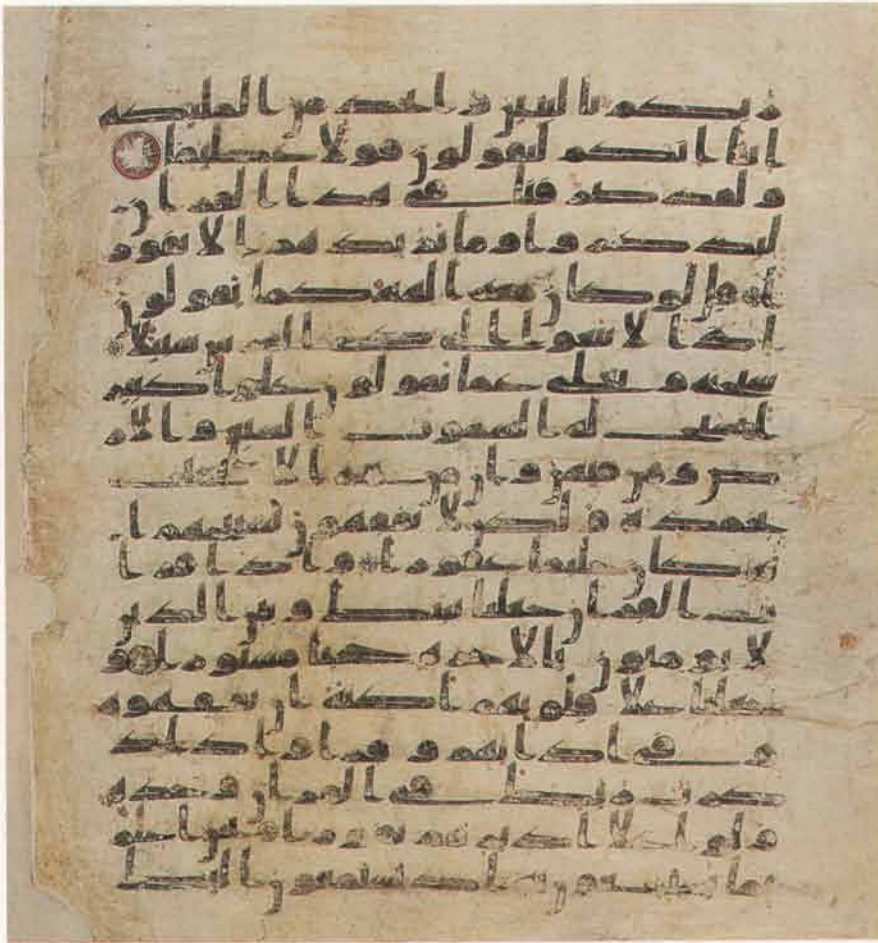 ربكم بالبنين واتخذ من المليكه
انثا انكم لتقولون قولا عظيما
ولقد صرفنا في هذا القران
ليذكروا وما يزيدهم الا نفور
ا قل لو كان معه الهه كما يقولون
اذا لابتغوا الى ذي العرش سبيلا
سبحنه وتعلى عما يقولون علوا كبير
ا تسبح له السموت السبع والار
ض ومن فيهن وان من شي الا يسبح
بحمده ولكن لا تفقهون تسبيحهم ا
نه كان حليما غفورا واذا قرا
ت القران جعلنا بينك وبين الذين
لا يومنون بالاخره حجبا مستورا و
جعلنا على قلوبهم اكنه ان يفقهوه
وفي اذانهم وقرا واذا ذك
رت ربك في القران وحده
ولوا على ادبرهم نفورا نحن اعلم
بما يستمعون به اذ يستمعون اليك